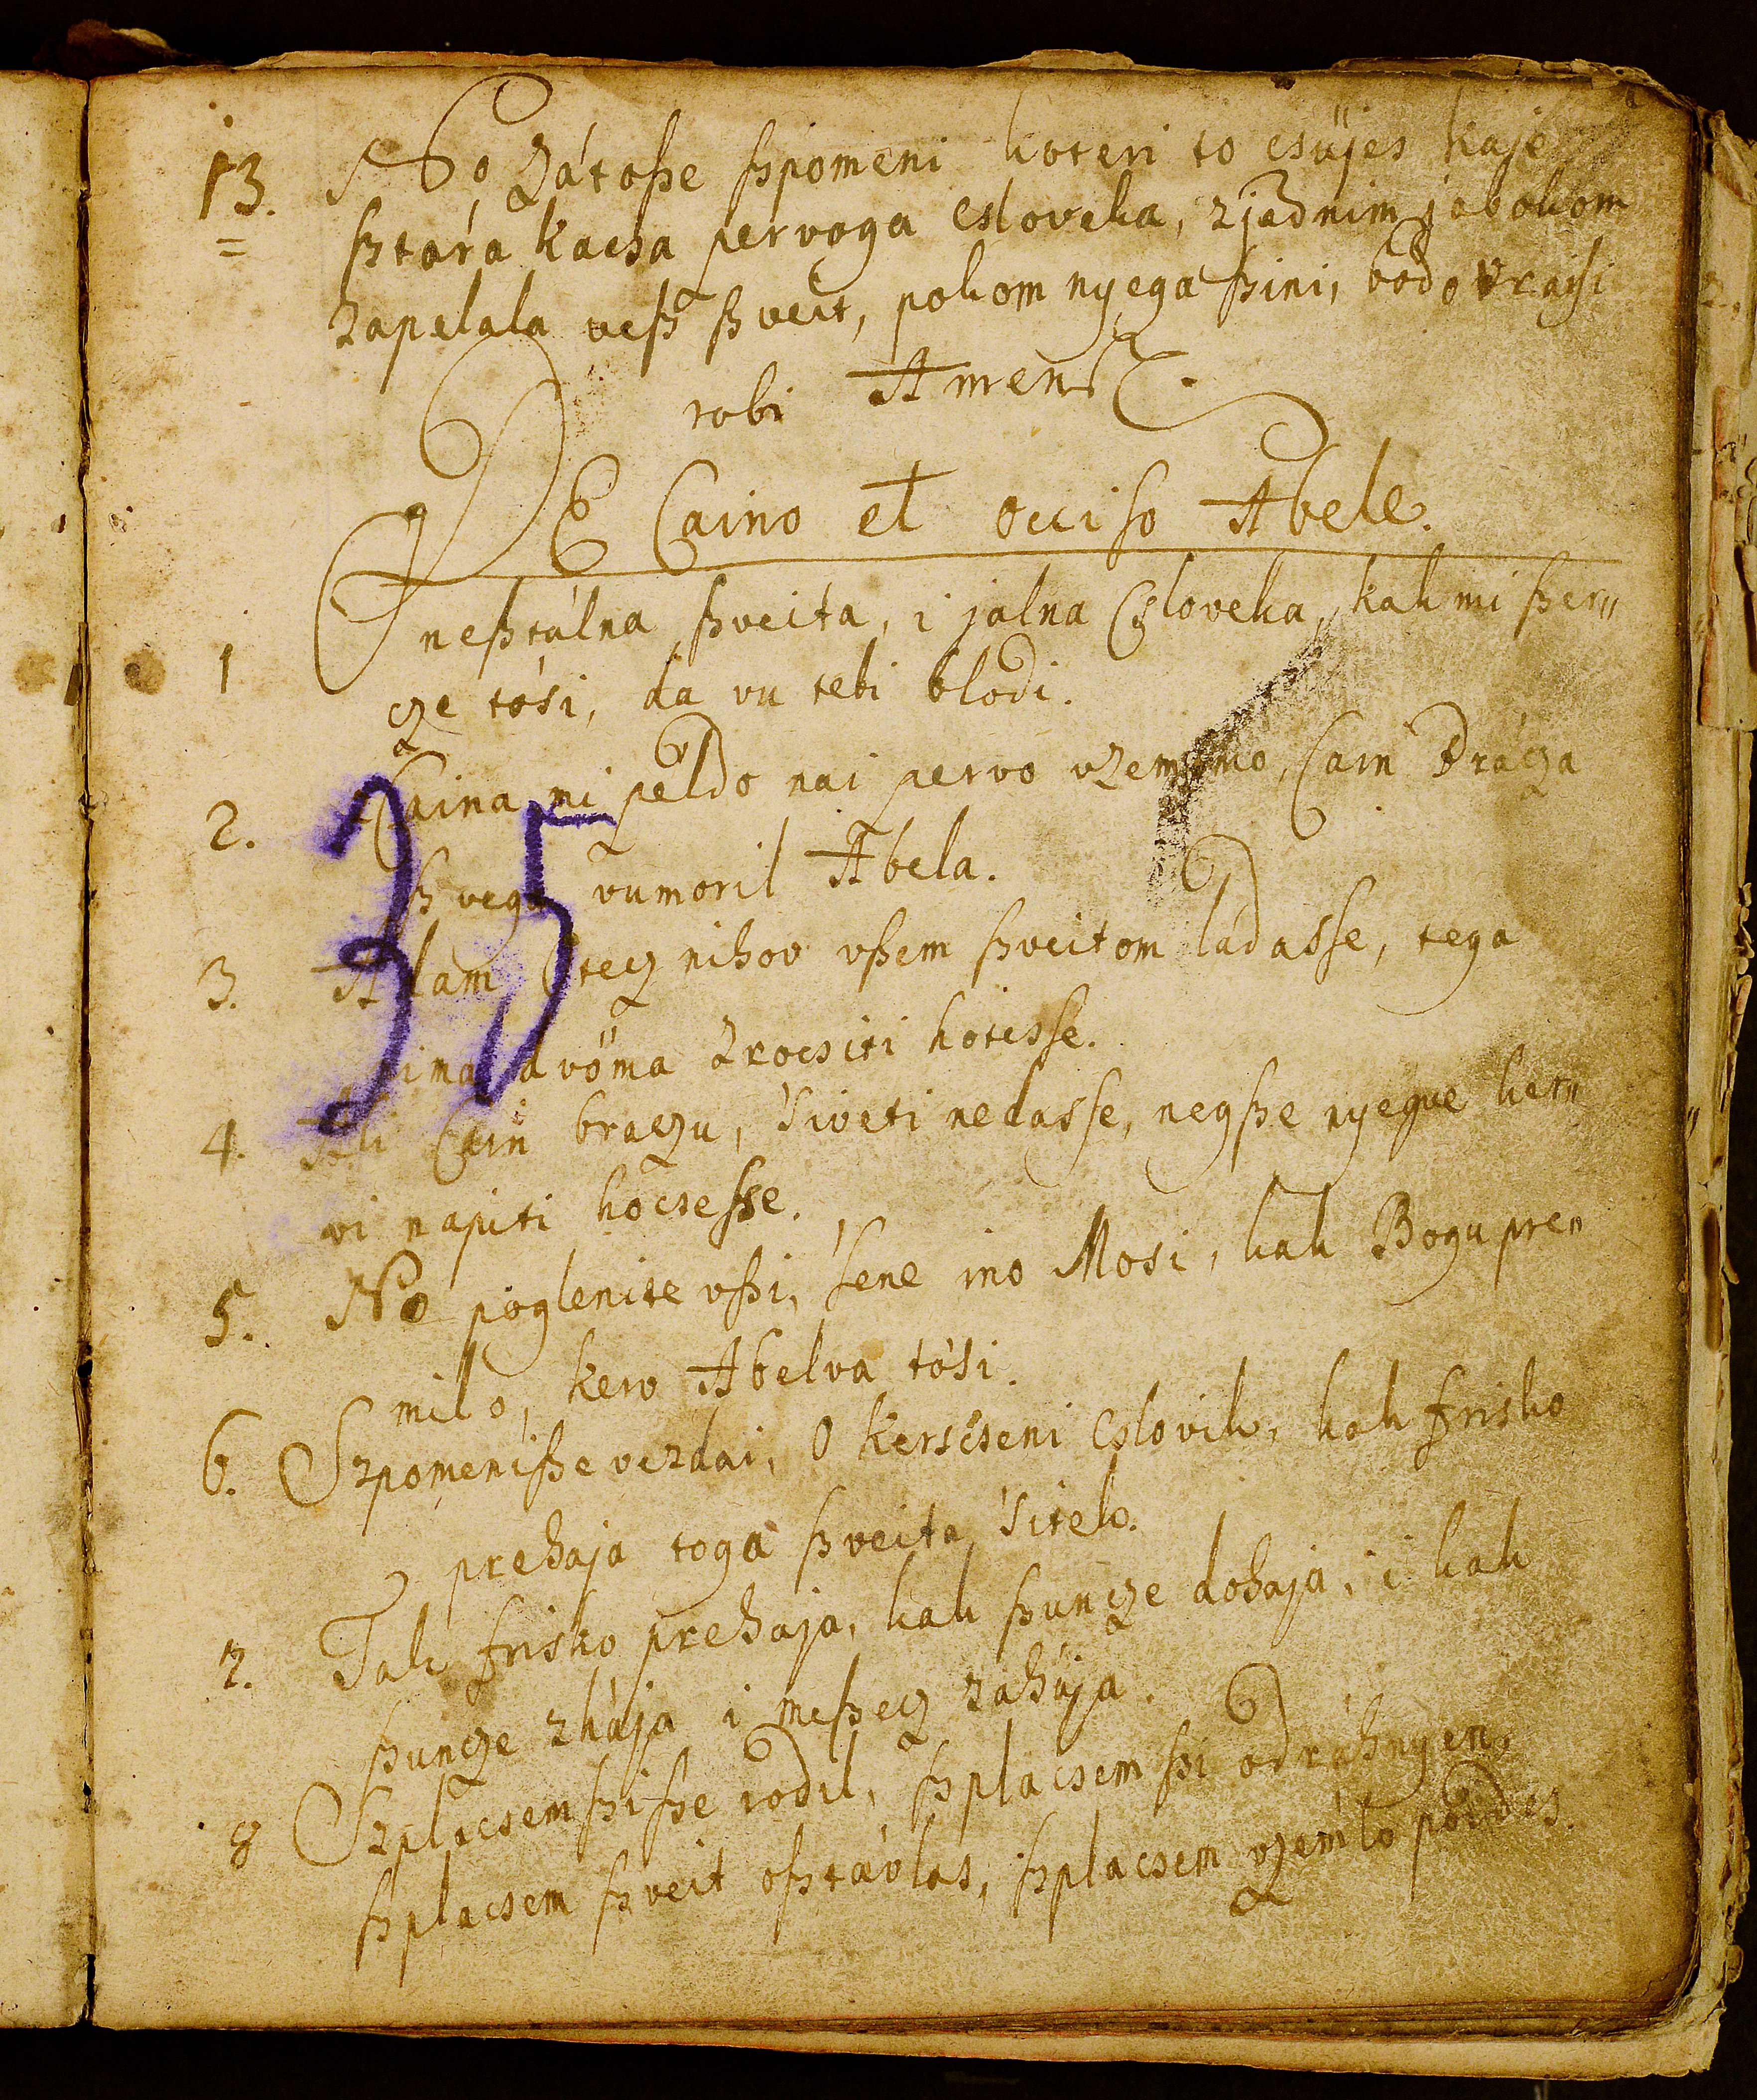 13. No zátoße ßpomeni koteri to csüjes kaje
ßtára kacsa pervoga csloveka, z jednim jabokom
zapelala veß ßveit, pokom nyega ßini, bodo vrajsi
robi Amen.
DE Caino et occiso Abele.
1 O neßtálna ßveita, i jalna Csloveka, kak mi ßer„
cze tósi, da vu tebi blodi.
2. Caina mi peldo nai pervo vzememo, Cain brácza
ßvega vumoril Abela.
35
3. Adam Otecz nihov vßem ßveitom ládasse, tega
nima dvöma zrocsiti hotesse.
4. Ali Cain braczu, siveti nedasse, negße nyegve ker„
vi napiti hocsesse.
5. No poglenite vßi, sene ino Mosi, kak Bogu pre„
milo, kerv Abelva tósi.
6. Szpomeniße vezdai, O kerscseni cslovik, kak frisko
prehaja toga ßveita sitek.
7. Tak frisko prehaja, kak ßuncze dohaja, i kak
ßuncze zhája i meßecz zahája.
8 Szplacsem ßiße rodil, ßplacsem ßi odráhnyen,
ßplacsem ßveit oßtávlas, ßplacsem vzemlo poides.